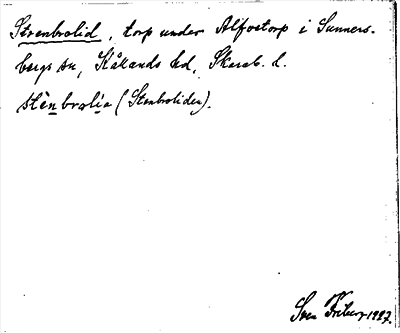 Stenbrolid, torp under Alfvstorp i Sunners-
bergs sn, Kålands hd, Skarab. l.
stènbrolìa (Stenbroliden).
Sven Friberg 1927.